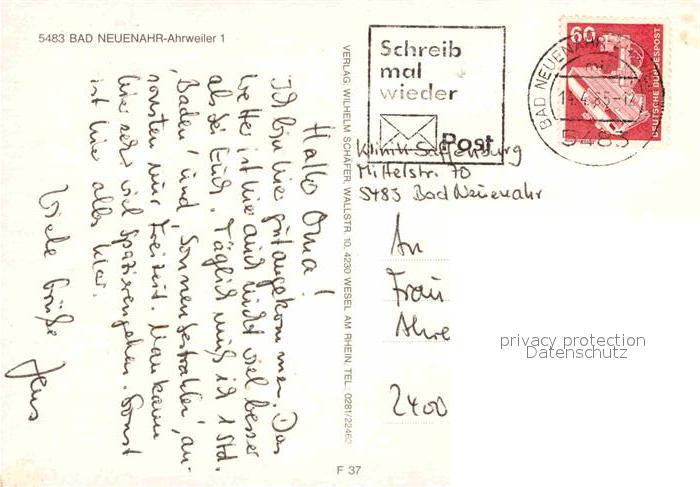 5483 BAD NEUENAHR-Ahrweiler 1
Hallo Oma!
Ich bin hier gut angekommen. Das
Wetter ist hier auch nicht viel besser
als bei Euch. Täglich muß ich 1 Std.
"Baden" und "Sonnenbestrahlen", an-
sonsten nur Freizeit. Man kann
hier sehr viel spazierengehen. Sonst
ist hier alles klar.
Viele Grüße
Jens
VERLAG: WILHELM SCHÄFER, WALLSTR. 10, 4230 WESEL AM RHEIN, TEL. 0281/22462
F 37
Schreib
mal
wieder
Post
60
DEUTSCHE BUNDESPOST
BAD NEUENAHR
5483
Klinik
Mittelstr. 70
5483 Bad Neuenahr
An
Frau
Ahre
2400
privacy protection
Datenschutz